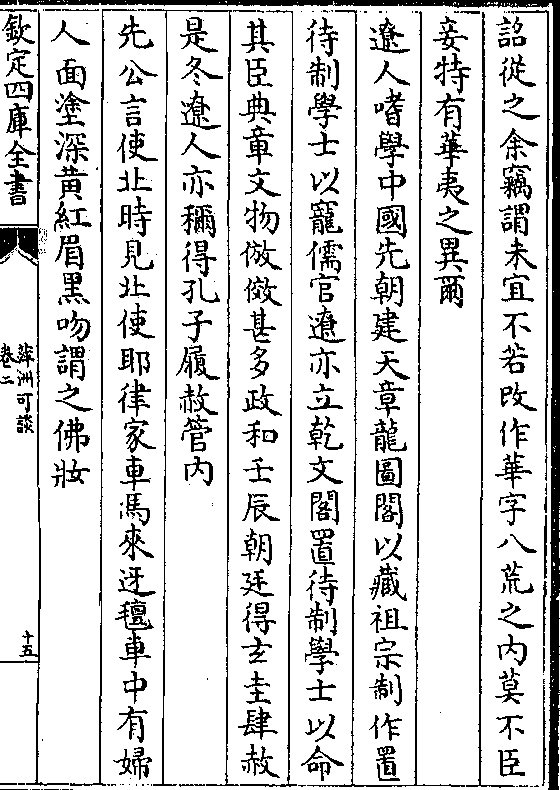 詔從之余竊謂未宜不若改作華字八荒之内莫不臣
妾特有華夷之異爾
遼人嗜學中國先朝建天章龍圖閣以藏祖宗制作置
待制學士以寵儒官遼亦立乾文閣置待制學士以命
其臣典章文物倣傚甚多政和壬辰朝廷得玄圭肆赦
是冬遼人亦稱得孔子履赦管内
先公言使北時見北使耶律家車馬來迓氊車中有婦
人面塗深黄紅眉黒吻謂之佛妝
欽定四庫全書
萍洲可談
卷二
十五